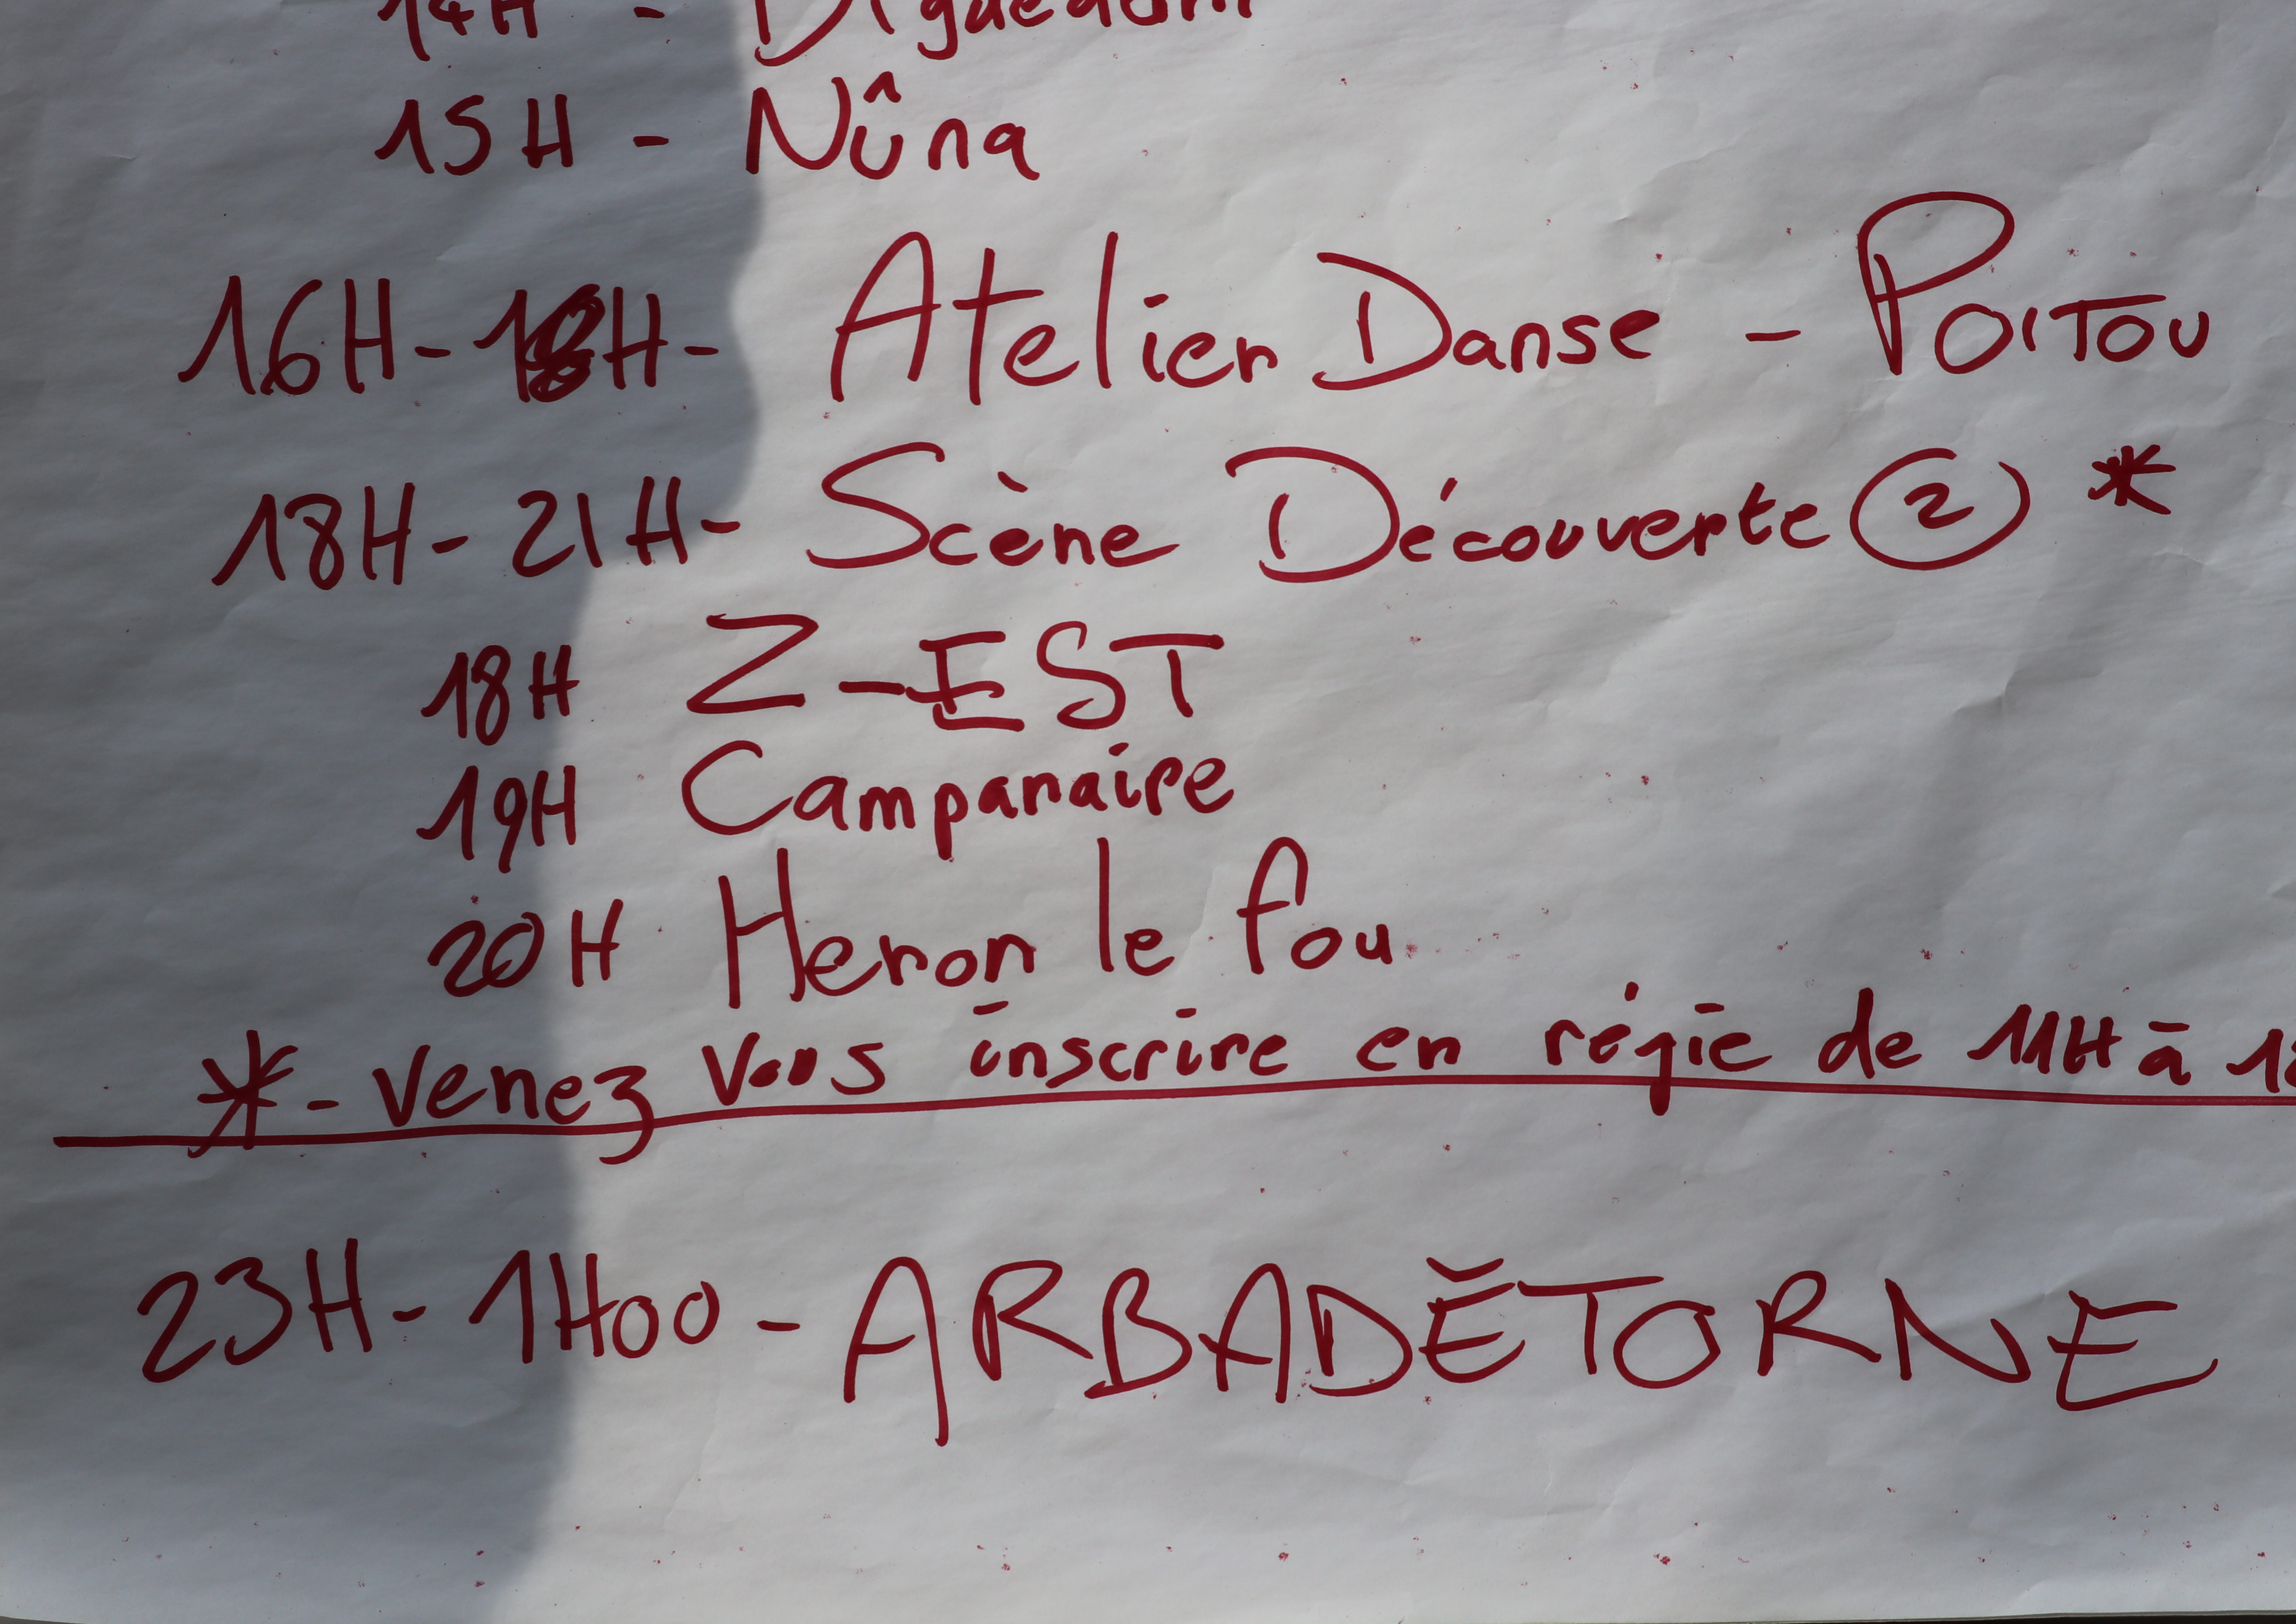 14H -
15H - Nûna
16H - 18H - Atelier Danse - POITOU
18H - 21H - Scène Découverte ② *
18H Z-EST
19H Campanaire
20H Heron le fou
* - Venez vous inscrire en régie de 11H à
23H - 1H00 - ARBADĚTORNE